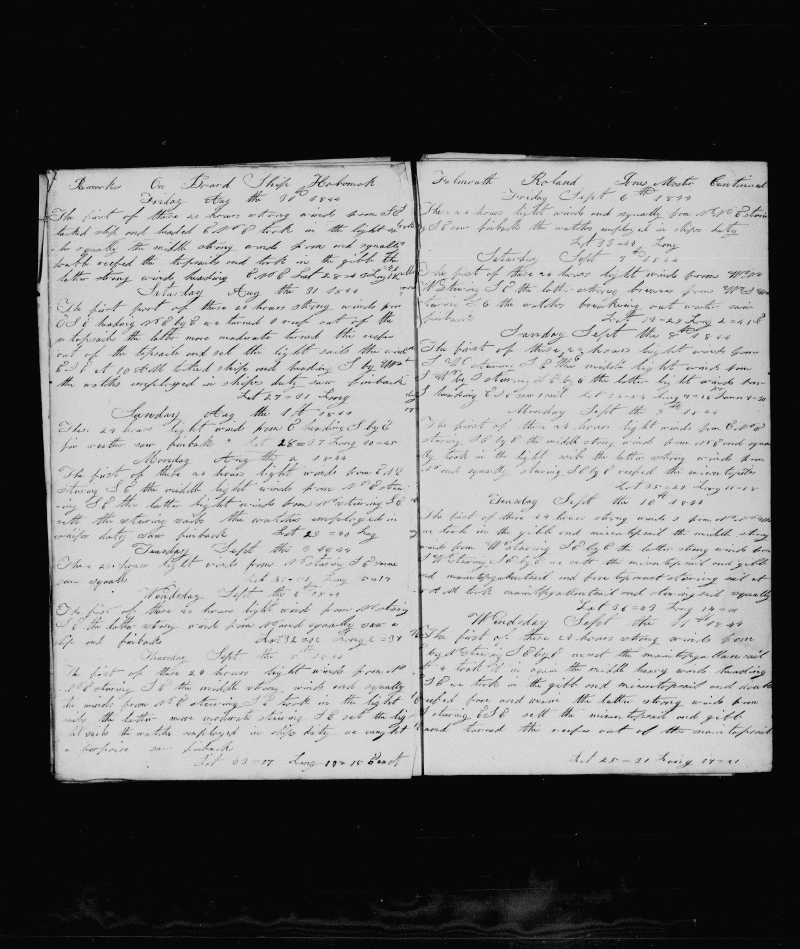 Remarks On Board Ship Hobomok
Friday Aug the 30th 1844
The first of these 24 hours strong winds from S E
tacked ship and headed E N E took in the light
sails squally the middle strong winds from and squally
double reefed the topsails and took in the gibb the
latter strong winds heading E N E Lat 28=43 Long
Saturday Aug the 31 1844
The first part of these 24 hours strong winds from
E S E heading N E by E we turned 1 reef out of the
topsails the latter more moderate turned the reefs
out of the topsails and set the light sails the wind
E S E at 10 A M tacked ship and heading S by W
the watch employed in ships duty saw finback
Lat 27=31 Long
Sunday Aug the 1st 1844
These 24 hours light winds from E heading S by E
fair weather saw finback Lat 28=37 Long 10=45
Monday Aug the 2 1844
The first of these 24 hours light winds from E N E
steering S E the middle light winds from N E steer
ing S E the latter light winds from N steering S E
sett the steering sails the watches employed in
ships duty saw finback Lat 29=40 Long
Tuesday Sept the 3 1844
These 24 hours light winds from N steering S E some
rain squalls Lat 30=51 Long
Wendsday Sept the 4 1844
The first of these 24 hours light winds from N steering
S E the latter strong winds from N and squally saw a
ship and finback Lat 32=12 Long 2=34
Thursday Sept the 5th 1844
The first of these 24 hours light winds from N
N E steering S E the middle strong winds and squally
the winds from N E steering S E took in the light
sails the latter more moderate steering S E set the lig
ht sails the watches employed in ships duty we caught
a porpoise saw finback
Lat 33=07 Long 10=15 East
Falmouth Roland Jones Master Continued
Friday Sept 6th 1844
These 24 hours light winds and squally from N N E steer
ing S E saw finback the watches employed in ships duty
Lat 33=44 Long
Saturday Sept 7th 1844
The first of these 24 hours light winds from W N
W steering S E the latter strong breezes from W S W
steering S E the watches breaking out water saw
finback Lat 34=29 Long 2=41 E
Sunday Sept the 8th 1844
The first of these 24 hours light winds from
S W steering S E the middle light winds from
S W by S steering S E by E the latter light winds from
S heading E S E saw 1 sail Lat Long
Monday Sept the 9th 1844
The first of these 24 hours light winds from E N E
steering S E by E the middle strong winds from N E and squa
lly took in the light sails the latter strong winds from
N and squally steering S E by E reefed the mizentopsail
Lat 35=29 Long 11=18
Tuesday Sept the 10th 1844
The first of these 24 hours strong winds from N N W
we took in the gibb and mizentopsail the middle strong
winds from W steering S E by E the latter strong winds from
W steering S E by E we sett the mizentopsail and gibb
and maintopgallantsail and fore topmast steering sail at
A M took maintopgallantsail and steering sail squally
Lat 36=03 Long 14=00
Wendsday Sept the 11th 1844
The first of these 24 hours strong winds from
W by N steering S E by E we set the maintopgallan sail
& took it in again the middle heavy winds heading
S E we took in the gibb and mizentopsail and double
reefed fore and main the latter strong winds from
S steering E S E sett the mizentopsail and gibb
and turned the reefs out of the maintopsail
Lat 35=31 Long 17=21